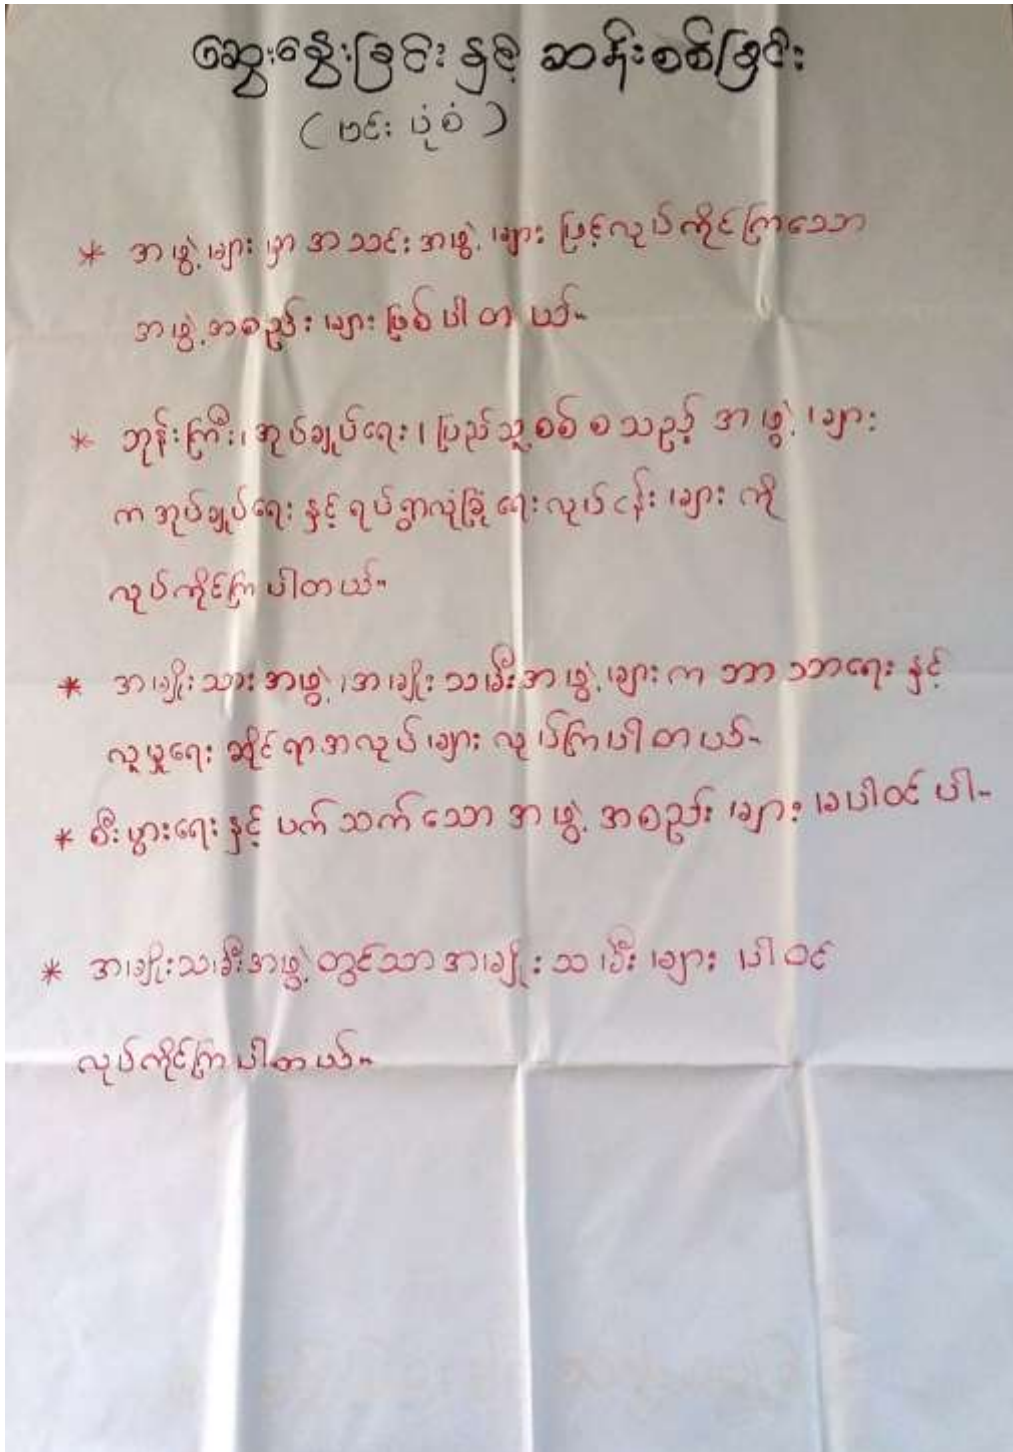 ဆွေးနွေးခြင်း နှင့် ဆန်းစစ်ခြင်း
( ဗင်း ပုံစံ )
* အဖွဲ့များ မှာ အသင်းအဖွဲ့ များ ဖြင့်လုပ်ကိုင်ကြသော
အဖွဲ့အစည်းများဖြစ်ပါတယ်။
* ဘုန်းကြီး၊ အုပ်ချုပ်ရေး၊ ပြည်သူ့စစ် စသည့် အဖွဲ့များ
က အုပ်ချုပ်ရေး နှင့် ရပ်ရွာလုံခြုံရေးလုပ်ငန်းများ ကို
လုပ်ကိုင်ကြပါတယ်။
* အမျိုးသားအဖွဲ့၊ အမျိုးသမီးအဖွဲ့များက ဘာသာရေး နှင့်
လူမှုရေး ဆိုင်ရာအလုပ်များ လုပ်ကြပါတယ်။
* စီးပွားရေးနှင့် ပက်သက်သော အဖွဲ့ အစည်းများ မပါဝင်ပါ။
* အမျိုးသမီးအဖွဲ့တွင်သာအမျိုးသမီးများ ပါဝင်
လုပ်ကိုင်ကြပါတယ်။